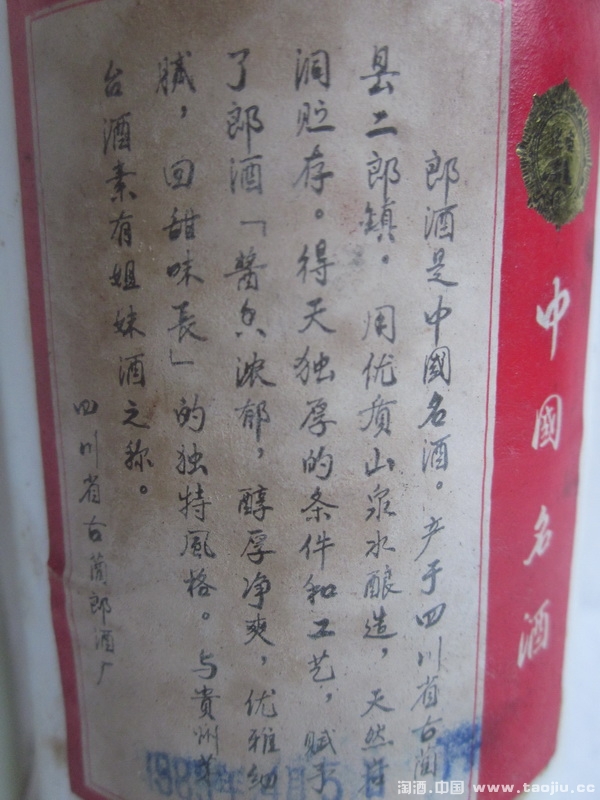 郎酒是中國名酒。产于四川省古蔺
县二郎镇。用优质山泉水酿造，天然
洞贮存。得天独厚的条件和工艺，赋予
了郎酒「醬香浓郁，醇厚净爽，优雅细
腻，回甜味長」的独特風格。与貴州茅
台酒素有姐妹酒之称。
四川省古蔺郎酒厂
中國名酒
淘酒.中国 www.taojiu.cc